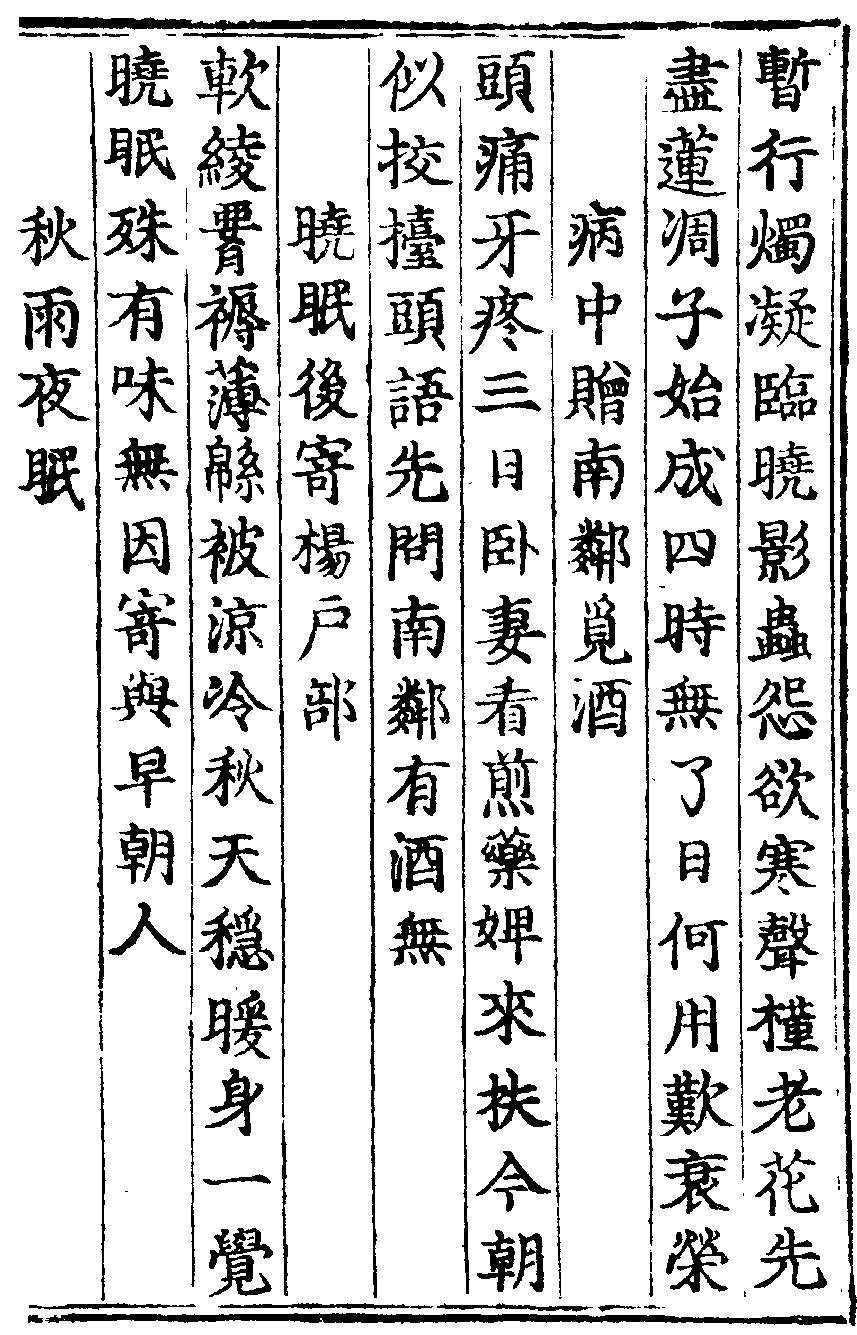 暫行燭凝臨曉影蟲怨欲寒聲槿老花先
盡蓮凋子始成四時無了日何用歎衰榮
病中贈南鄰覓酒
頭痛牙疼三日卧妻看煎藥婢來扶今朝
似挍擡頭語先問南鄰有酒無
曉眠後寄楊户部
軟綾腰褥薄緜被涼冷秋天穩暖身一覺
曉眠殊有味無因寄與早朝人
秋雨夜眠